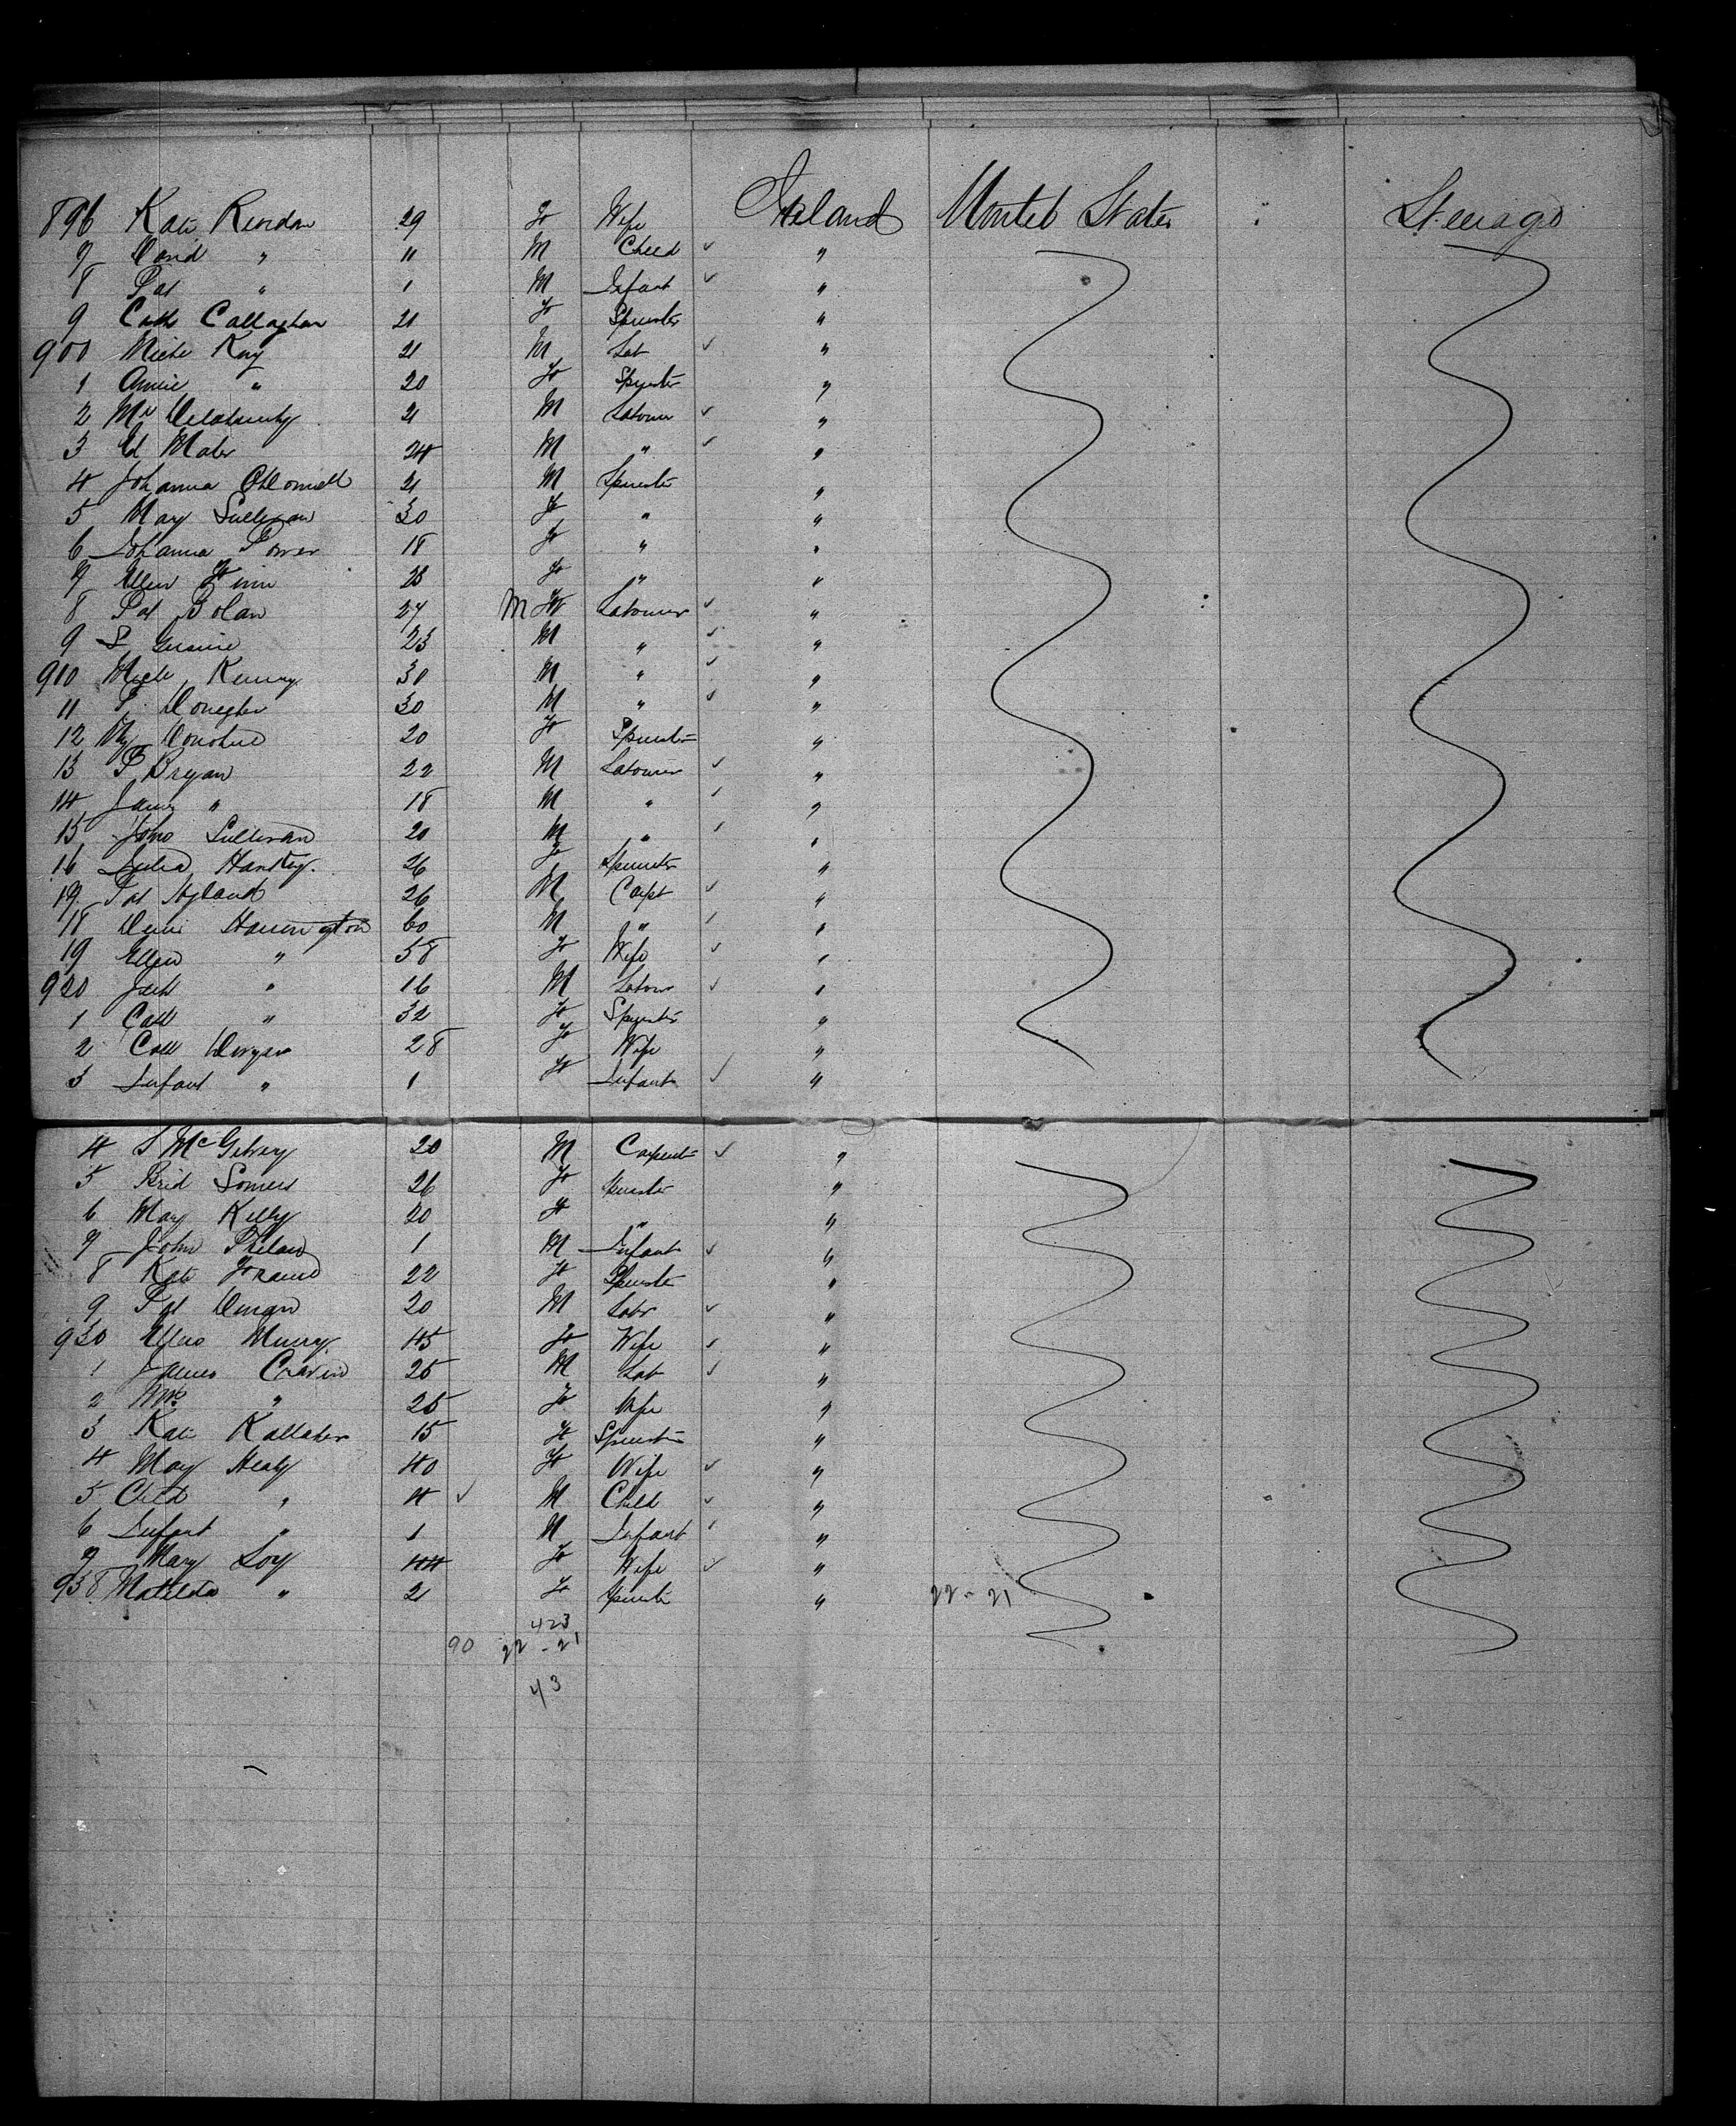 896 Kate Riordan 29 F Wife Ireland United States Steerage
7 David " 11 M Child ✓ "
8 Pat " 1 M Infant ✓ "
9 Cath Callaghan 21 F Spinster "
900 Mich Kay 21 M Lab ✓ "
1 Annie " 20 F Spinster "
2 21 M Labourer ✓ "
3 Ed Maher 24 M " ✓ "
4 Johanna O'Donnell 21 M Spinster "
5 Mary Sullivan 30 F " "
6 Johanna Power 18 F " "
7 Ellen Finn 23 F " "
8 Pat Bolan 27 M Labourer ✓ "
9 23 M " ✓ "
910 Mich 30 M " ✓ "
11 30 M " ✓ "
12 Donohue 20 F Spinster "
13 P Bryan 22 M Labourer ✓ "
14 James " 18 M " ✓ "
15 John Sullivan 20 M " ✓ "
16 Julia 26 F Spinster "
17 Pat Hyland 26 M Carpt ✓ "
18 Harrington 60 M " ✓ "
19 Ellen " 58 F Wife ✓ "
920 " 16 M Labour ✓ "
1 Cath " 32 F Spinster "
2 Cath 28 F Wife "
3 Infant " 1 F Infant ✓ "
4 20 M Carpentr ✓ "
5 Brid Somers 26 F Spinster "
6 Mary Kelly 20 F " "
7 John Phelan 1 M Infant ✓ "
8 Kate 22 F Spinster "
9 Pat 20 M Labr ✓ "
930 Ellen Murray 45 F Wife ✓ "
1 James Craven 25 M Lab ✓ "
2 Mrs " 25 F Wife "
3 Kate Kallaher 15 F Spinster "
4 May Healy 40 F Wife ✓ "
5 Child " 4 ✓ M Child ✓ "
6 Infant " 1 M Infant ✓ "
7 Mary Loy 44 F Wife ✓ "
938 Matilda " 21 F Spinster " 22 - 21
423
90 22 - 21
43